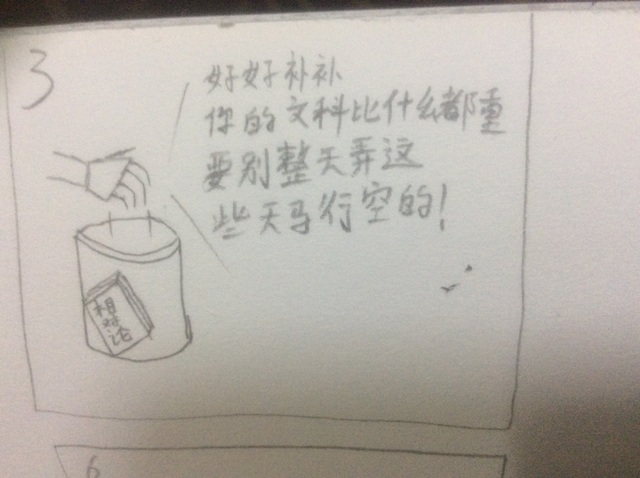 3
好好补补
你的文科比什么都重
要别整天弄这
些天马行空的!
相对论
6